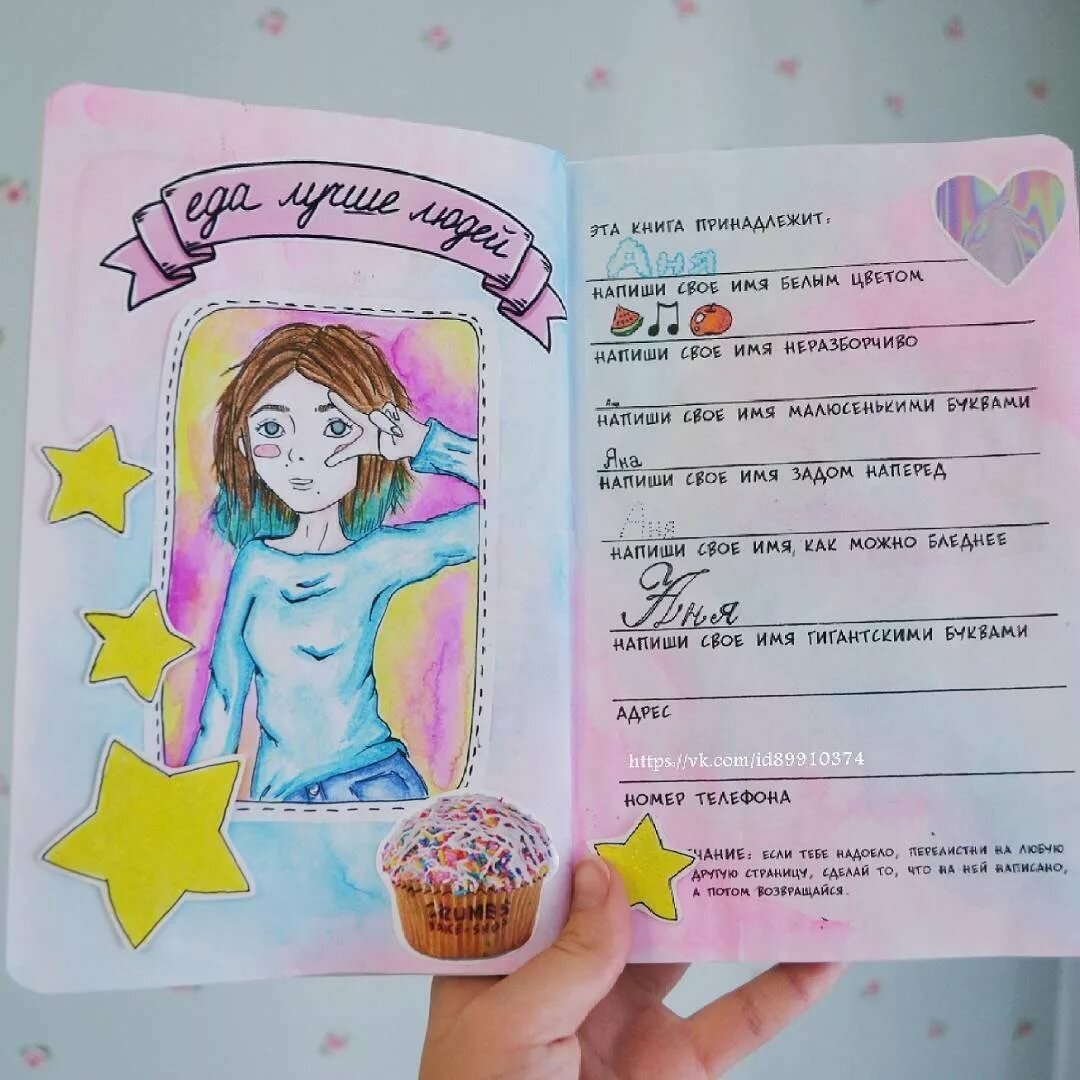 еда лучше людей
ЭТА КНИГА ПРИНАДЛЕЖИТ:
Аня
НАПИШИ СВОЕ ИМЯ БЕЛЫМ ЦВЕТОМ
НАПИШИ СВОЕ ИМЯ НЕРАЗБОРЧИВО
Аня
НАПИШИ СВОЕ ИМЯ МАЛЮСЕНЬКИМИ БУКВАМИ
Яна
НАПИШИ СВОЕ ИМЯ ЗАДОМ НАПЕРЕД
Аня
НАПИШИ СВОЕ ИМЯ, КАК МОЖНО БЛЕДНЕЕ
Аня
НАПИШИ СВОЕ ИМЯ ГИГАНТСКИМИ БУКВАМИ
АДРЕС
https://vk.com/id89910374
НОМЕР ТЕЛЕФОНА
ЧАНИЕ: ЕСЛИ ТЕБЕ НАДОЕЛО, ПЕРЕЛИСТНИ НА ЛЮБУЮ
ДРУГУЮ СТРАНИЦУ, СДЕЛАЙ ТО, ЧТО НА НЕЙ НАПИСАНО,
А ПОТОМ ВОЗВРАЩАЙСЯ.
CRUMBS
BAKE-SHOP